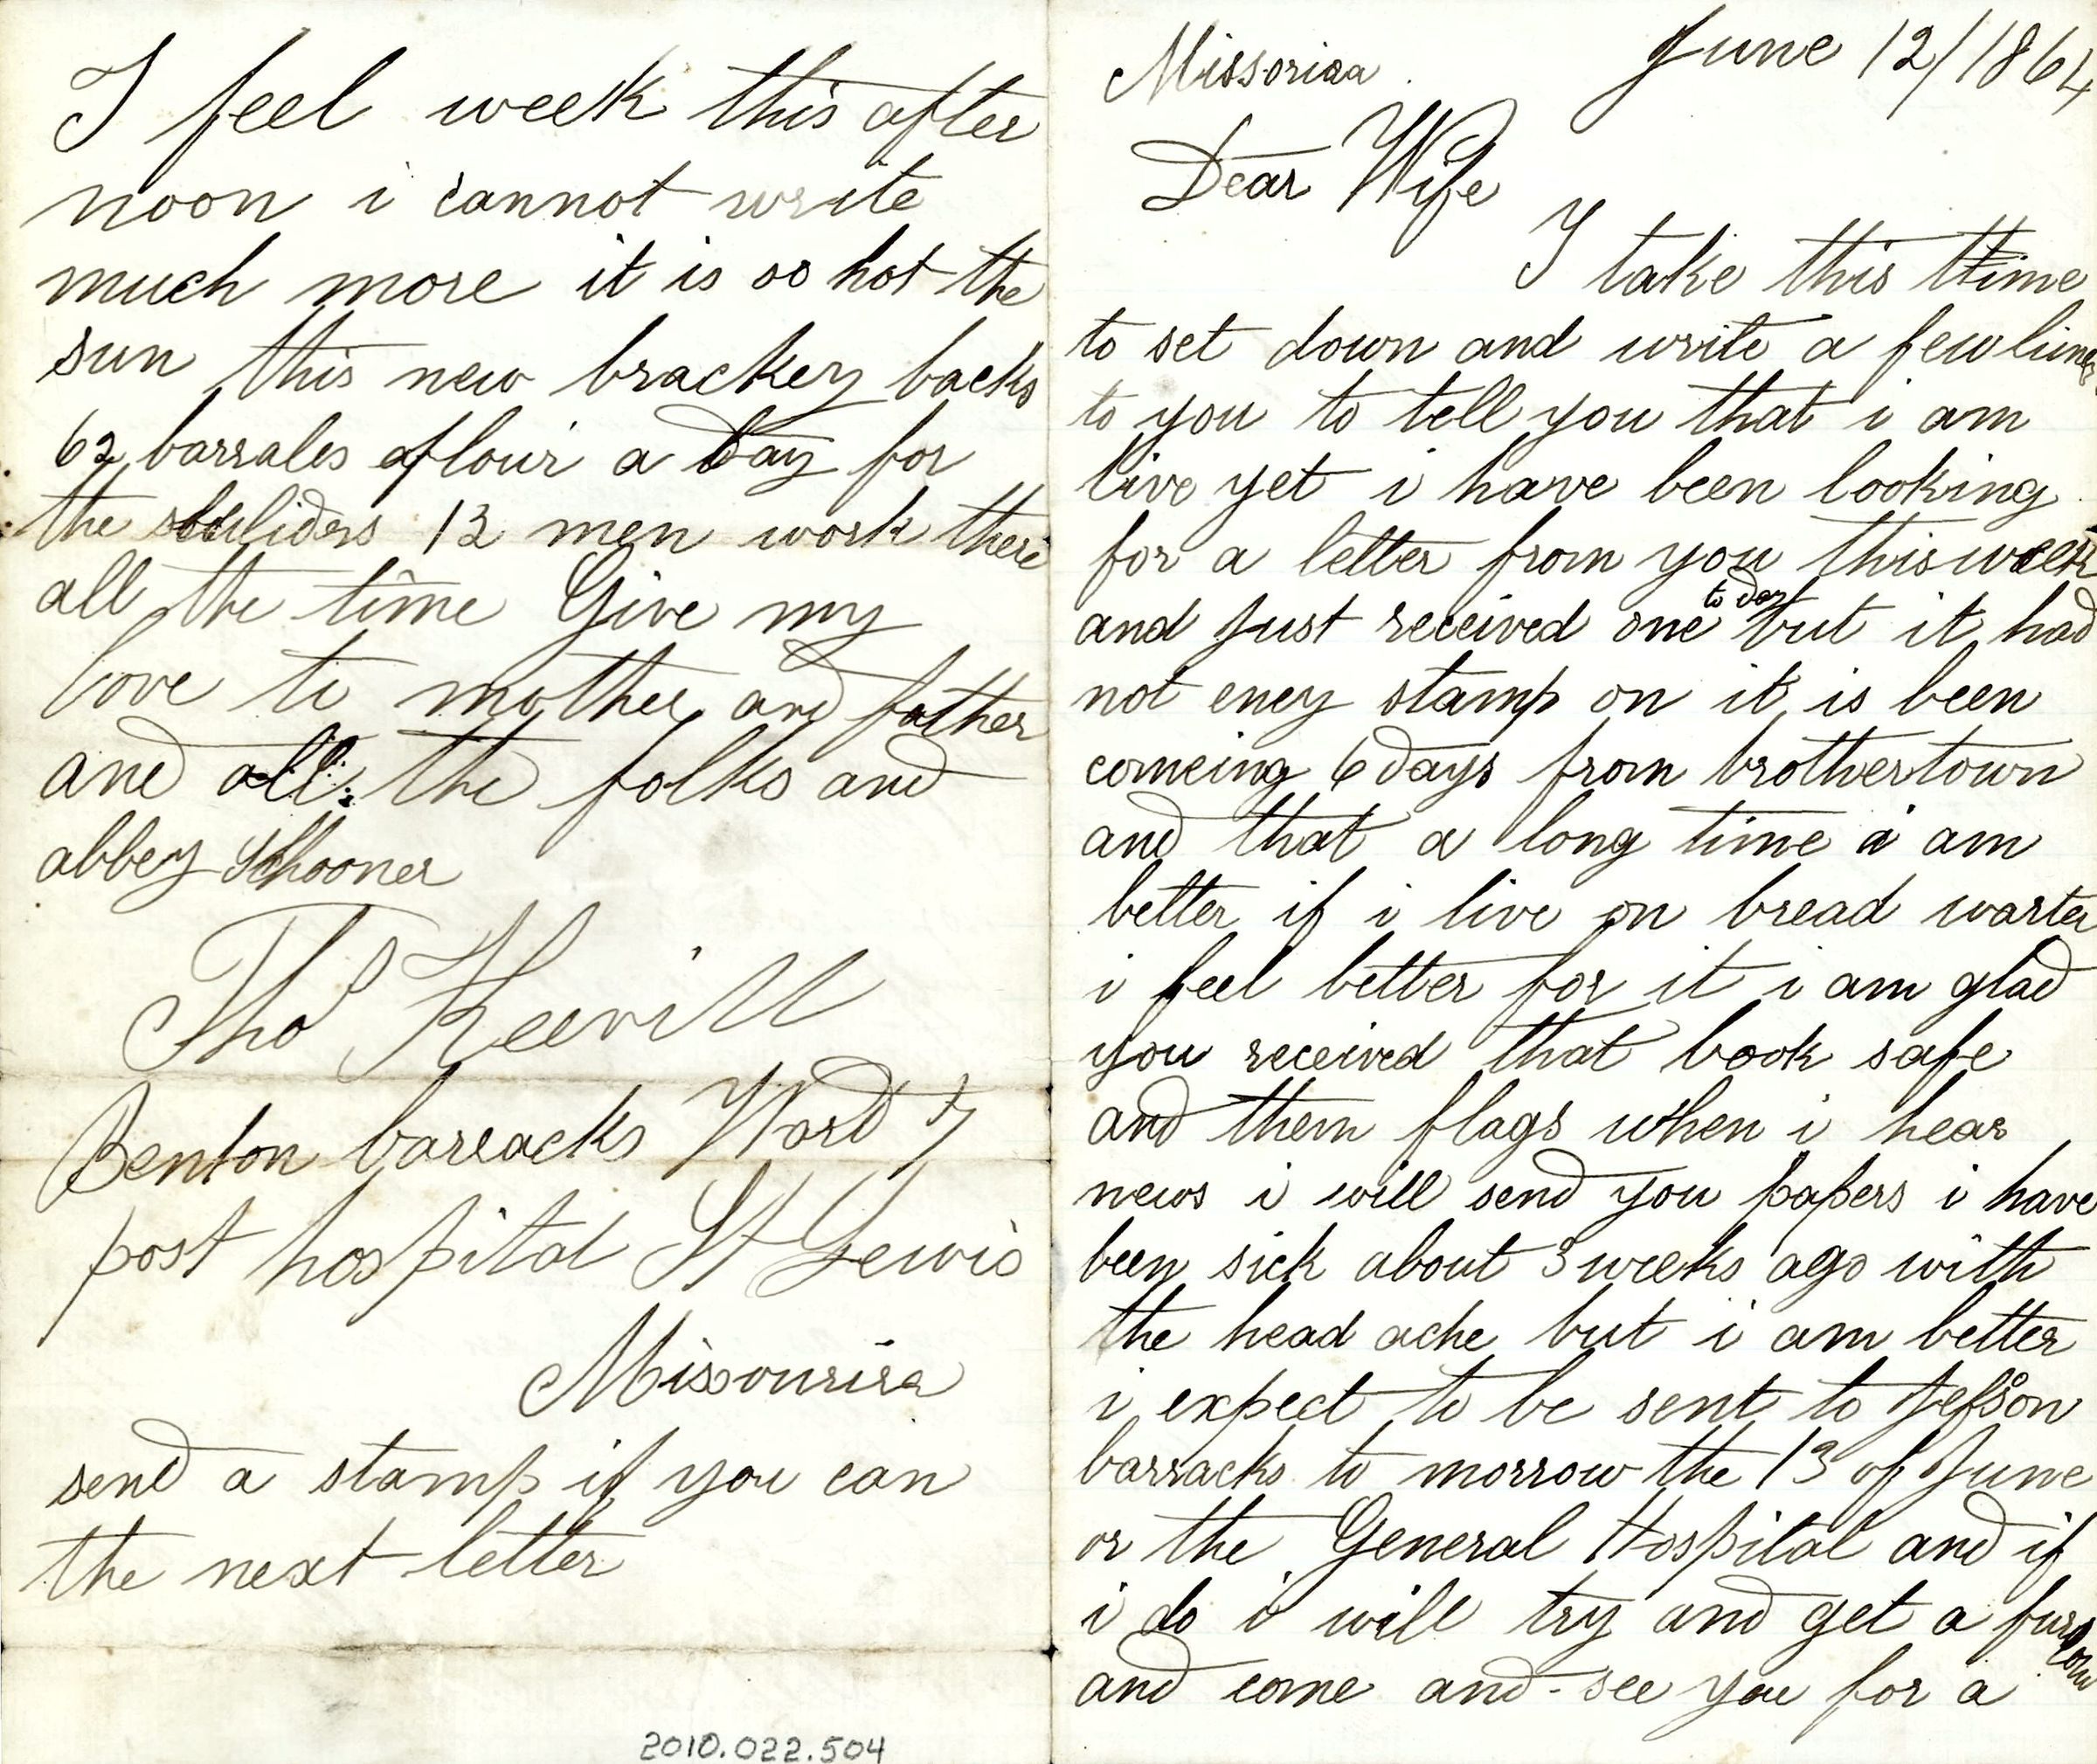 Missoriaa June 12/1864
Dear Wife
I take this ttime
to set down and write a few lines
to you to tell you that i am
live yet i have been looking
for a letter from you this week
and just received one to day but it had
not eney stamp on it is been
comeing 6 days from brothertown
and that a long time i am
better if i live on bread warter
i feel better for it i am glad
you received that book safe
and them flags when i hear
news i will send you papers i have
been sick about 3 weeks ago with
the head ache but i am better
i expect to be sent to Jefson
barracks to morrow the 13 of June
or the General Hospital and if
i do i will try and get a furlow
and come and see you for a
I feel week this after
noon i cannot write
much more it is so hot the
sun this new brackery backs
62 barrales aflour a day for
the 12 men work there
all the time Give my
love to mother and father
and all the folks and
abbey Schooner
Tho Keevill
Benton barracks Ward 7
post hospital St Lewis
Missourira
send a stamp if you can
the next letter
2010.022.504